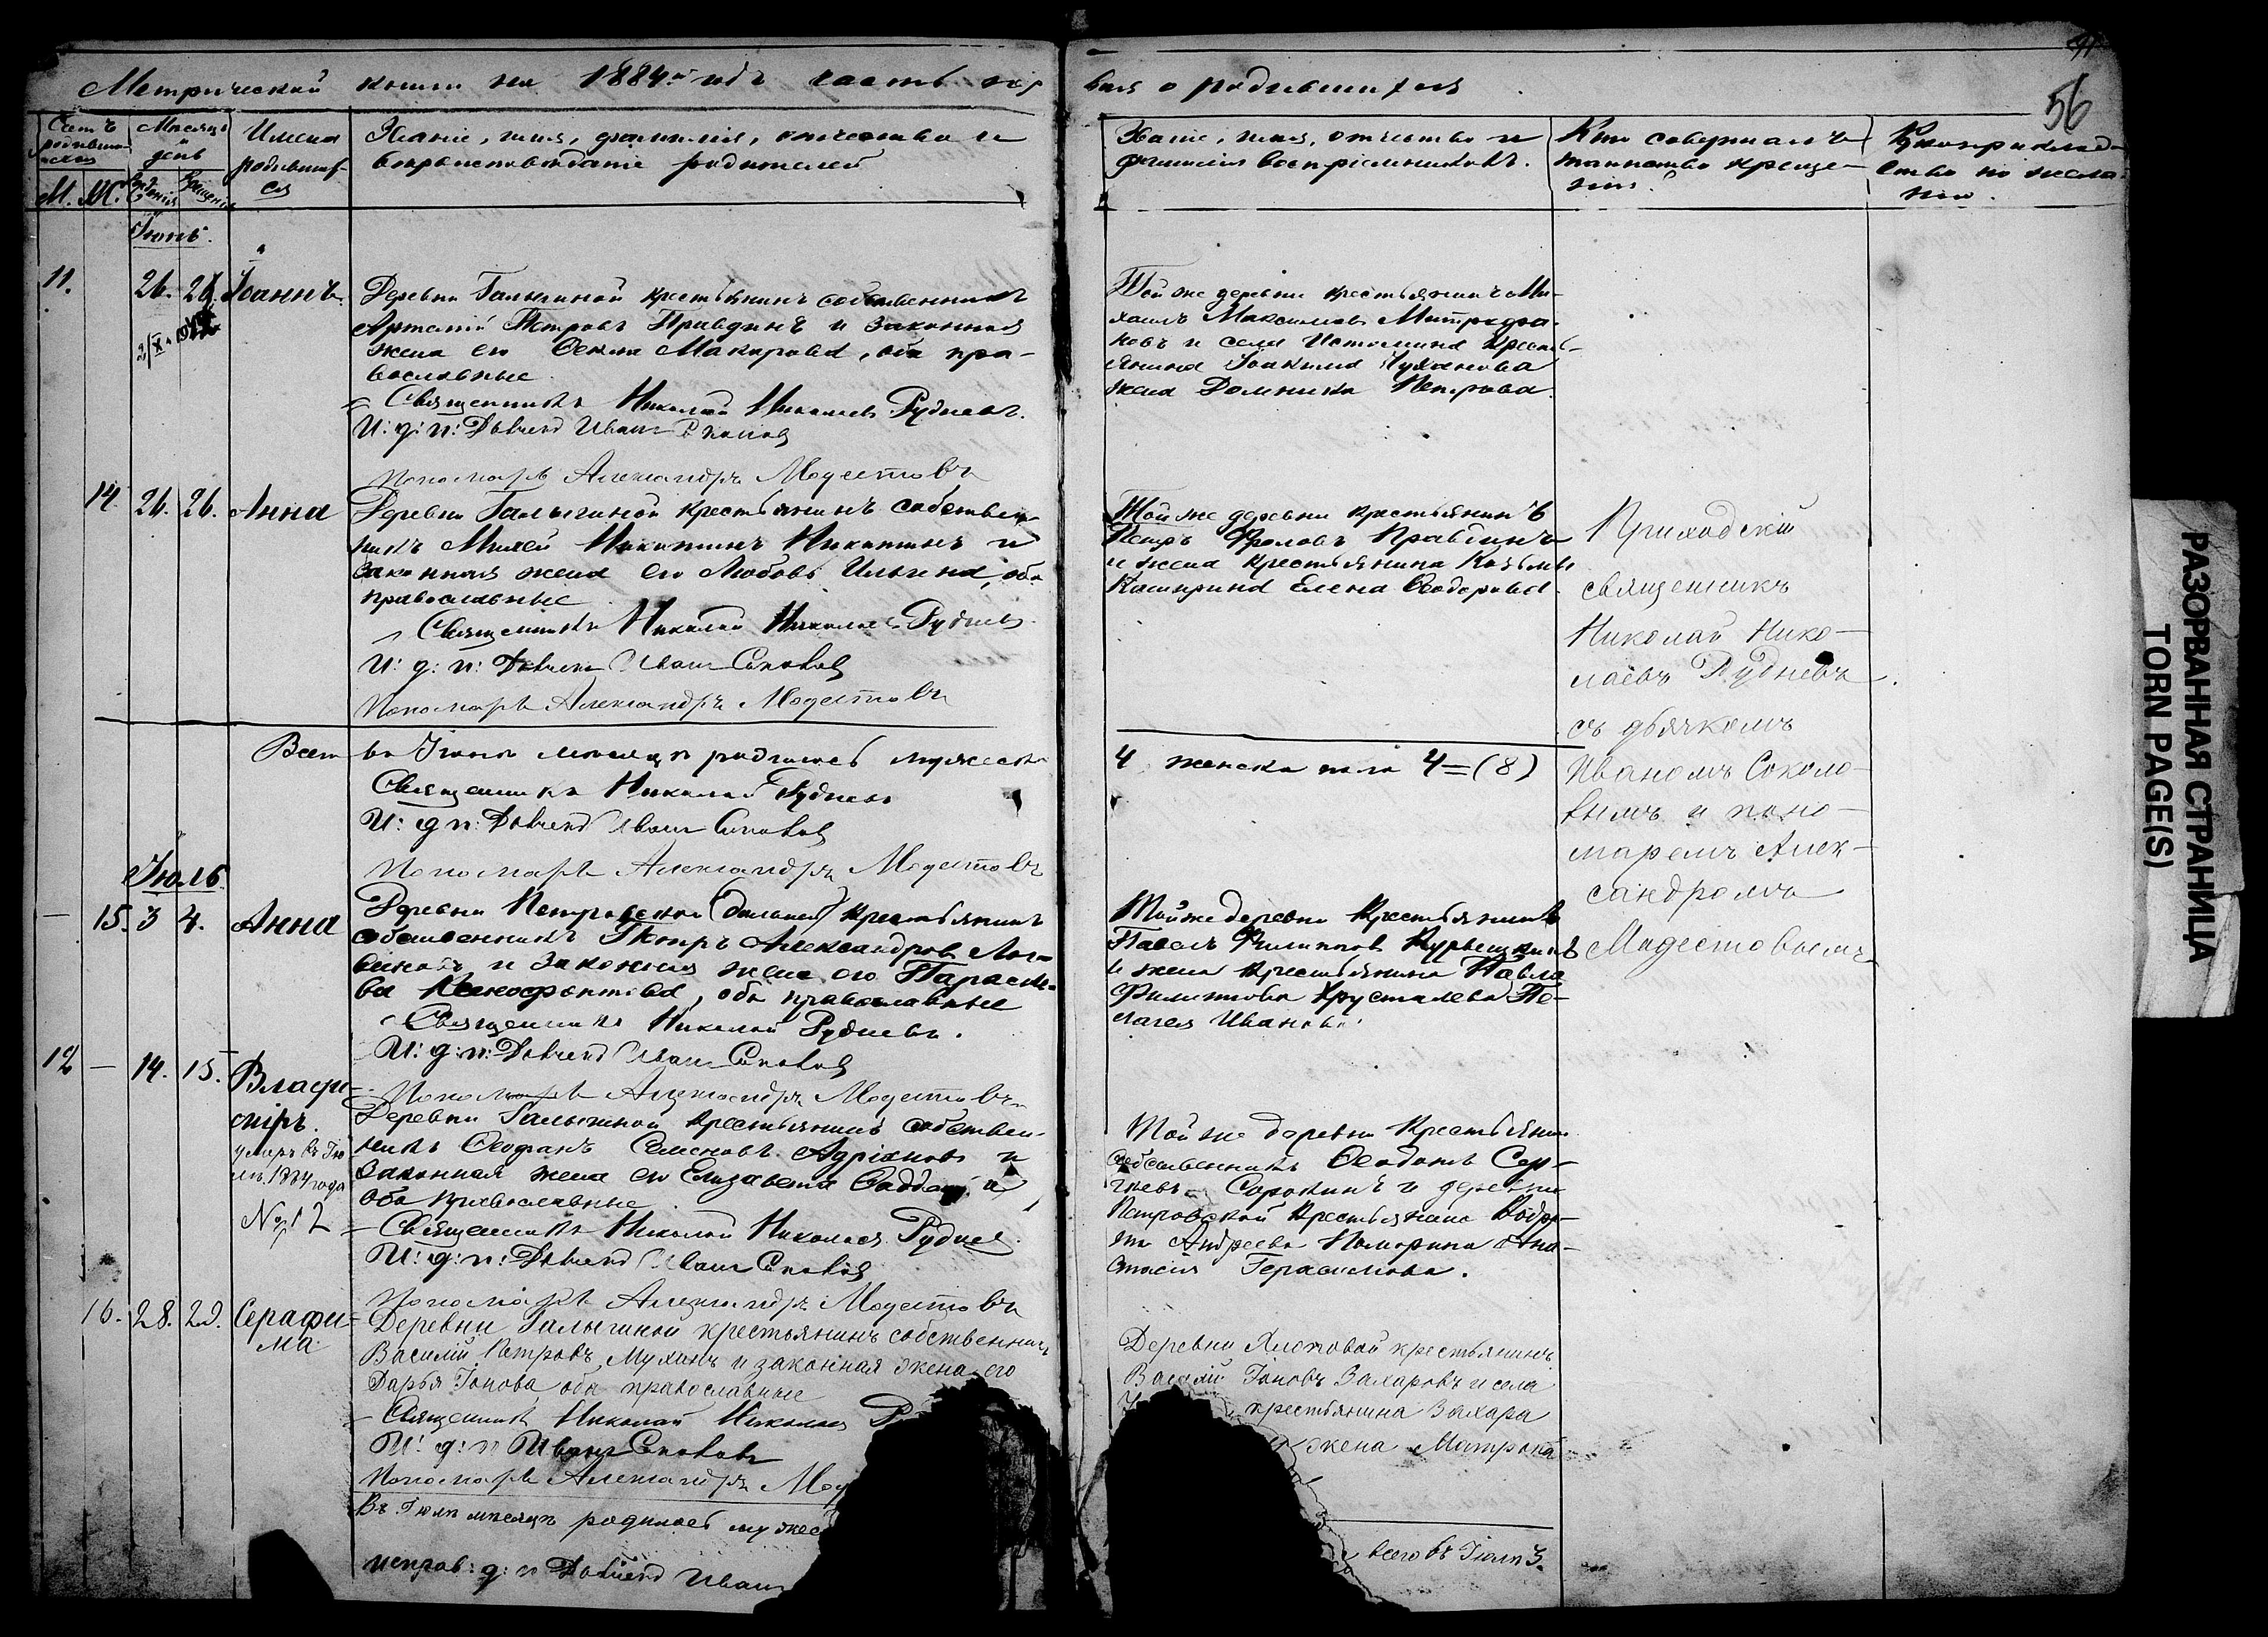 Метрической книги на 1884й годъ часть пер
вая о родившихся
56
Счетъ родившихся
М. Ж.
Месяцъ и день
Рожденія Крещенія
Имена родившихся
Званіе, имя, фамилія, отчество и
вѣроисповѣданіе родителей
Званіе, имя, отчество и
фамилія воспріемниковъ.
Кто совершалъ
таинство креще-
нія.
Рукоприклад-
ство по жела-
нію.
Іюнь.
11.
26. 26. Іоаннъ.
Деревни Галыгиной крестьянинъ собственникъ
Артемій Петровъ Правдинъ и законная
жена его Ѳекла Макарова, оба пра-
вославные
Священникъ Николай Николаевъ Рудневъ.
И: д: п: Дьячекъ Иванъ Соколовъ
Пономарь Александръ Модестовъ
Той же деревни крестьянинъ Ми-
хаилъ Максимовъ Митрофа-
новъ и села Истомина крестья-
янина Іоакима
жена Домника Петрова.
14. 26. 26. Анна
Деревни Галыгиной крестьянинъ собствен-
никъ Михей Никитинъ Никитинъ и
законная жена его Любовь Ильина, оба
православные
Священникъ Николай Николаевъ Рудневъ
И: д: п: Дьячекъ Иванъ Соколовъ
Пономарь Александръ Модестовъ
Той же деревни крестьянинъ
Петръ Фроловъ Правдинъ
и жена крестьянина Козьмы
Каширина Елена Ѳеодорова.
Приходскій
священникъ
Николай Нико-
лаевъ Рудневъ
съ дьячкомъ
Иваномъ Соколо-
вымъ и поно-
маремъ Алек-
сандромъ
Модестовымъ
Всего въ Іюнѣ месяцѣ родилось мужеска
4 женска пола 4=(8)
Священникъ Николай Рудневъ
И: д: п: Дьячекъ Иванъ Соколовъ
Пономарь Александръ Модестовъ
Іюль.
15. 3 4. Анна
Деревни Петровской (дальней) крестьянинъ
собственникъ Петръ Александровъ Лог-
виновъ и законная жена его Параске-
ва Ксенофонтова, оба православные
Священникъ Николай Рудневъ.
И: д: п: Дьячекъ Иванъ Соколовъ
Пономарь Александръ Модестовъ
Той же деревни крестьянинъ
Павелъ Филипповъ
и жена крестьянина Павла
Филиппова Хрусталева Пе-
лагея Иванова.
12 — 14. 15. Влади-
міръ.
умеръ въ Ію
лѣ 1884 года
№ 12
Деревни Галыгиной крестьянинъ собствен-
никъ Ѳеофанъ Семеновъ Адріановъ и
законная жена его Елизавета
оба православные
Священникъ Николай Николаевъ Рудневъ.
И: д: п: Дьячекъ Иванъ Соколовъ
Пономарь Александръ Модестовъ
Той же деревни крестьянинъ
собственникъ Ѳеодотъ Сер-
гѣевъ Сорокинъ и деревни
Петровской крестьянина
Андреева Анас-
тасія Герасимова.
16. 28. 29. Серафи-
ма
Деревни Галыгиной крестьянинъ собственникъ
Василій Петровъ Мухинъ и законная жена его
Дарья Іонова, оба православные
Священникъ Николай Николаев Р
И: д: п Иванъ Соколовъ
Пономарь Александръ Мод
Деревни крестьянинъ
Василій Іоновъ Захаровъ и села
крестьянина Захара
жена Матрона
Въ Іюлѣ месяцѣ родилось мужес
всего въ Іюлѣ 3.
исправ: д: п Дьячекъ Иванъ
РАЗОРВАННАЯ СТРАНИЦА
TORN PAGE(S)